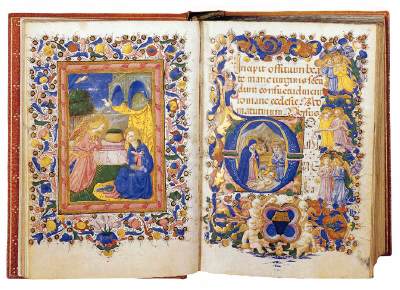 Incipit offitium bea
te marie virginis secu
dum consuetudinem
romane ecclesie. Ad
matutinum